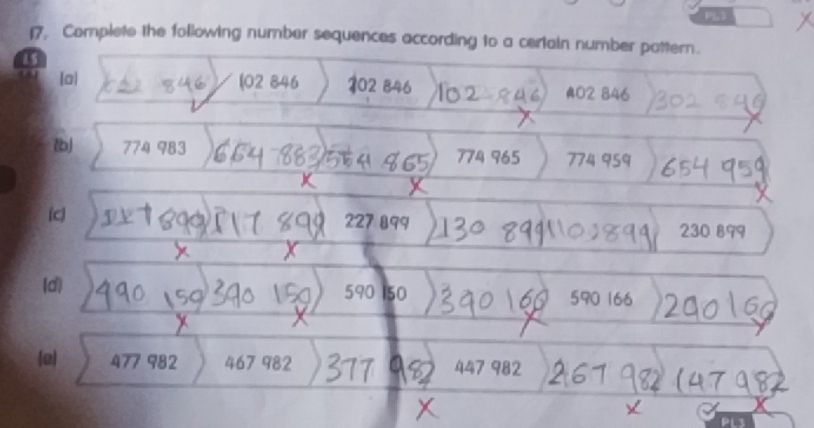 PL3
17. Complete the following number sequences according to a certain number pattern.
(a) 846 102 846 202 846 102 846 402 846 302 846
(b) 774 983 664 883 554 865 774 965 774 959 654 959
(c) 899 117 899 227 899 130 899 110 899 230 899
(d) 490 150 390 150 590 150 390 160 590 166 290 160
(e) 477 982 467 982 377 982 447 982 267 982 147 982
PL3